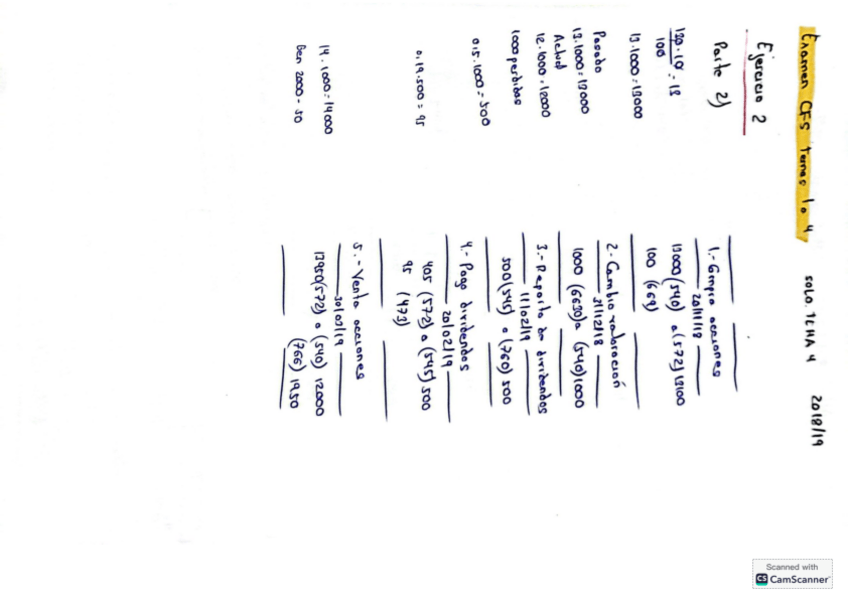 Examen CFS temas 1 a 4 SOLO TEMA 4 2018/19
Ejercicio 2
Parte 2)
130·10 = 13
100
13·1000=13000
Pasado
13·1000=13000
Actual
12·1000=12000
1000 perdidas
0'5·1000=500
0,19·500=95
14·1000=14000
Ben 2000-50
1.- Compra acciones
20/11/18
13000 (540) a (572) 13100
100 (669)
2.- Cambio valoración
31/12/18
1000 (6630) a (540) 1000
3.- Reparto de dividendos
11/02/19
500 (545) a (760) 500
4.- Pago dividendos
20/02/19
405 (572) a (545) 500
95 (473)
5.- Venta acciones
30/03/19
13950 (572) a (540) 12000
(766) 1950
Scanned with
CS CamScanner